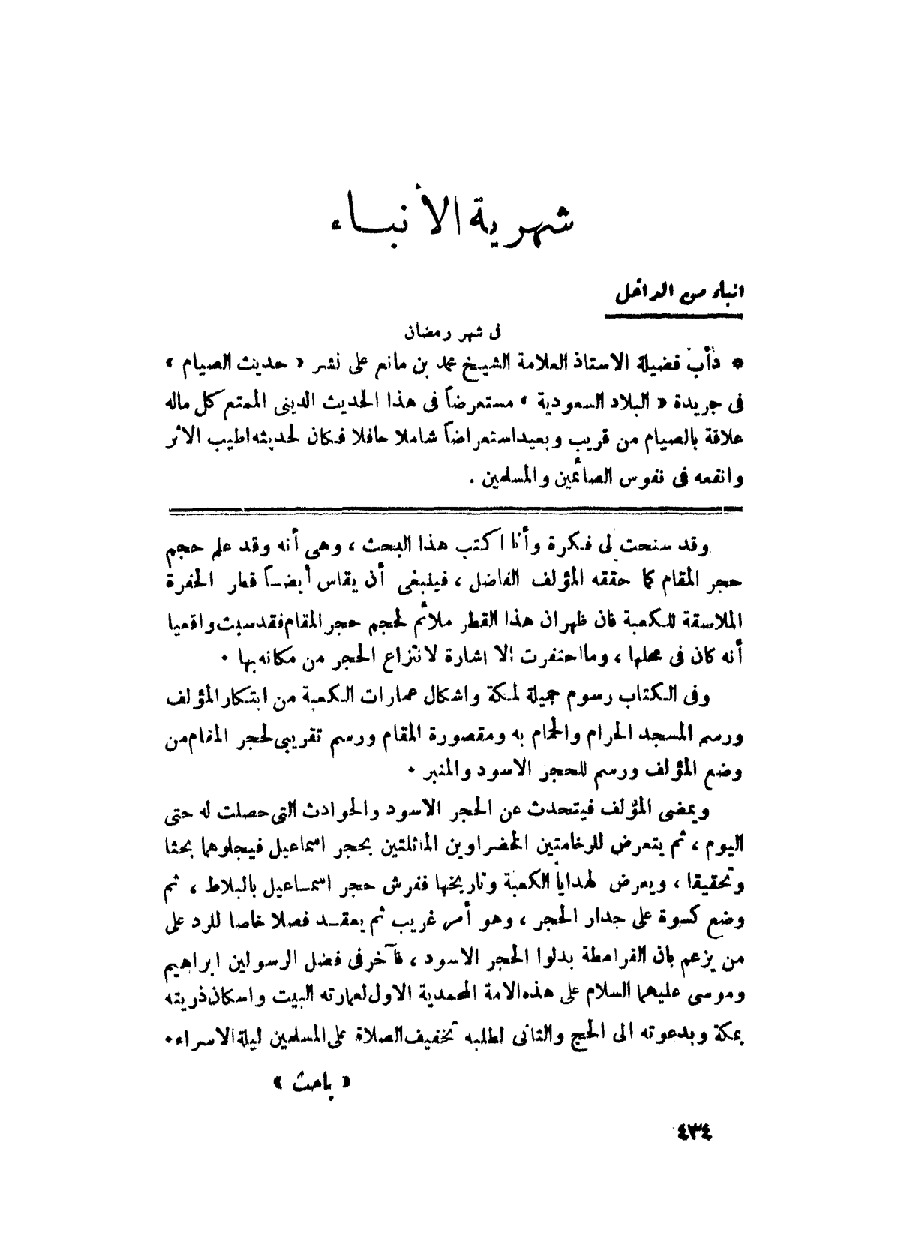 شهرية الأنبـــاء
انباء من الداخل
فى شهر رمضان
* دأب فضيلة الاستاذ العلامة الشيخ محمد بن مانع على نشر « حديث الصيام »
فى جريدة « البلاد السعودية » مستعرضاً فى هذا الحديث الدينى الممتع كل ماله
علاقة بالصيام من قريب وبعيد استعراضاً شاملا حافلا فكان لحديثه اطيب الاثر
وانفعه فى نفوس الصائمين والمسلمين .
وقد سنحت لى فكرة وأنا اكتب هذا البحث ، وهى أنه وقد علم حجم
حجر المقام كما حققه المؤلف الفاضل ، فينبغى أن يقاس أيضاً قطر الحفرة
الملاسقة للكعبة فان ظهر ان هذا القطر ملائم لحجم حجر المقام فقد سبت واقعيا
أنه كان فى محلها ، وما احتفرت الا اشارة لانتزاع الحجر من مكانه بها .
وفى الكتاب رسوم جميلة لمكة واشكال عمارات الكعبة من ابتكار المؤلف
ورسم المسجد الحرام والحمام به ومقصورة المقام ورسم تقريبى لحجر المقام من
وضع المؤلف ورسم للحجر الاسود والمنبر .
ويمضى المؤلف فيتحدث عن الحجر الاسود والحوادث التى حصلت له حتى
اليوم ، ثم يتعرض للرخامتين الخضراوين الماثلتين بحجر اسماعيل فيجلوهما بحثا
وتحقيقا ، ويعرض لهدايا الكعبة وتاريخها ففرش حجر اسمـاعيل بالبلاط ، ثم
وضع كسوة على جدار الحجر ، وهو أمر غريب ثم يعقـد فصلا خاصا للرد على
من يزعم بان القرامطة بدلوا الحجر الاسود ، فآخر فى فضل الرسولين ابراهيم
وموسى عليهما السلام على هذه الامة المحمدية الاول لعمارته البيت واسكان ذريته
بمكة وبدعوته الى الحج والثانى لطلبه تخفيف الصلاة على المسلمين ليلة الاسراء .
« باحث »
٤٣٤